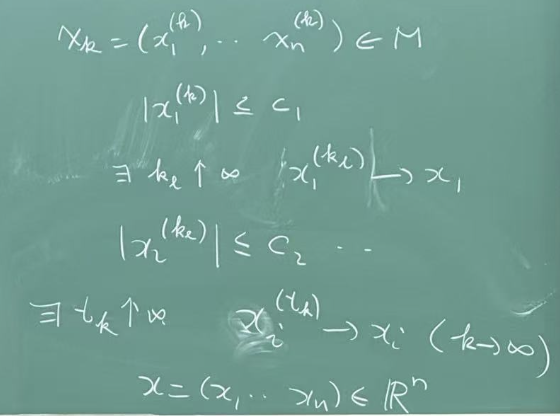 x_k = (x_1^{(k)}, .. x_n^{(k)}) ∈ M
|x_1^{(k)}| ≤ c_1
∃ k_ℓ ↑ ∞ |x_1^{(k_ℓ)}| → x_1
|x_2^{(k_ℓ)}| ≤ C_2 ...
∃ t_k ↑ ∞ x_i^{(t_k)} → x_i (k → ∞)
x = (x_1 .. x_n) ∈ ℝ^n